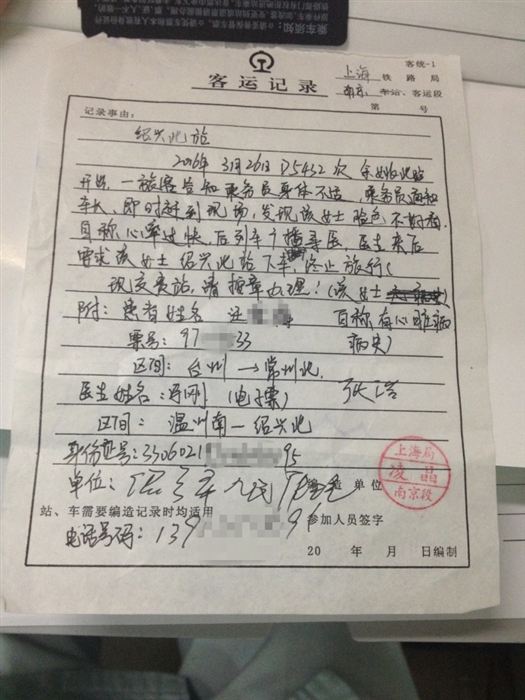 乘车须知
客统-1
客运记录
上海 铁路局
南京 车站、客运段
第 号
记录事由：
绍兴北站
2016年 3月26日 D5432次 余姚北站
开出，一旅客告知乘务员身体不适，乘务员通知
车长，即时赶到现场，发现该女士脸色不好看
自称心率过快，后列车广播寻医，医生来后
要求该女士绍兴北站下车，终止旅行！
现交贵站，请按章办理！（该女士
附：患者姓名 自称有心脏病
病史）
票号：97 33
区间：台州→常州北
医生姓名： （电子票）
区间：温州南—绍兴北
身份证号：3306021 95
单位： 编造单位
上海局
凌晶
南京段
站、车需要编造记录时均适用
参加人员签字
电话号码：139 91
20 年 月 日编制